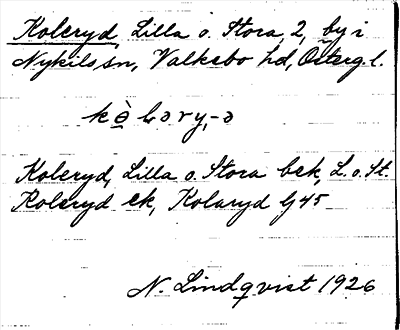 Koleryd, Lilla o. Stora, 2, by i
Nykils sn, Valkebo hd, Östergl.
Koleryd, Lilla o. Stora bek, L. o. St.
Koleryd ek, Kolaryd G45
N. Lindqvist 1926